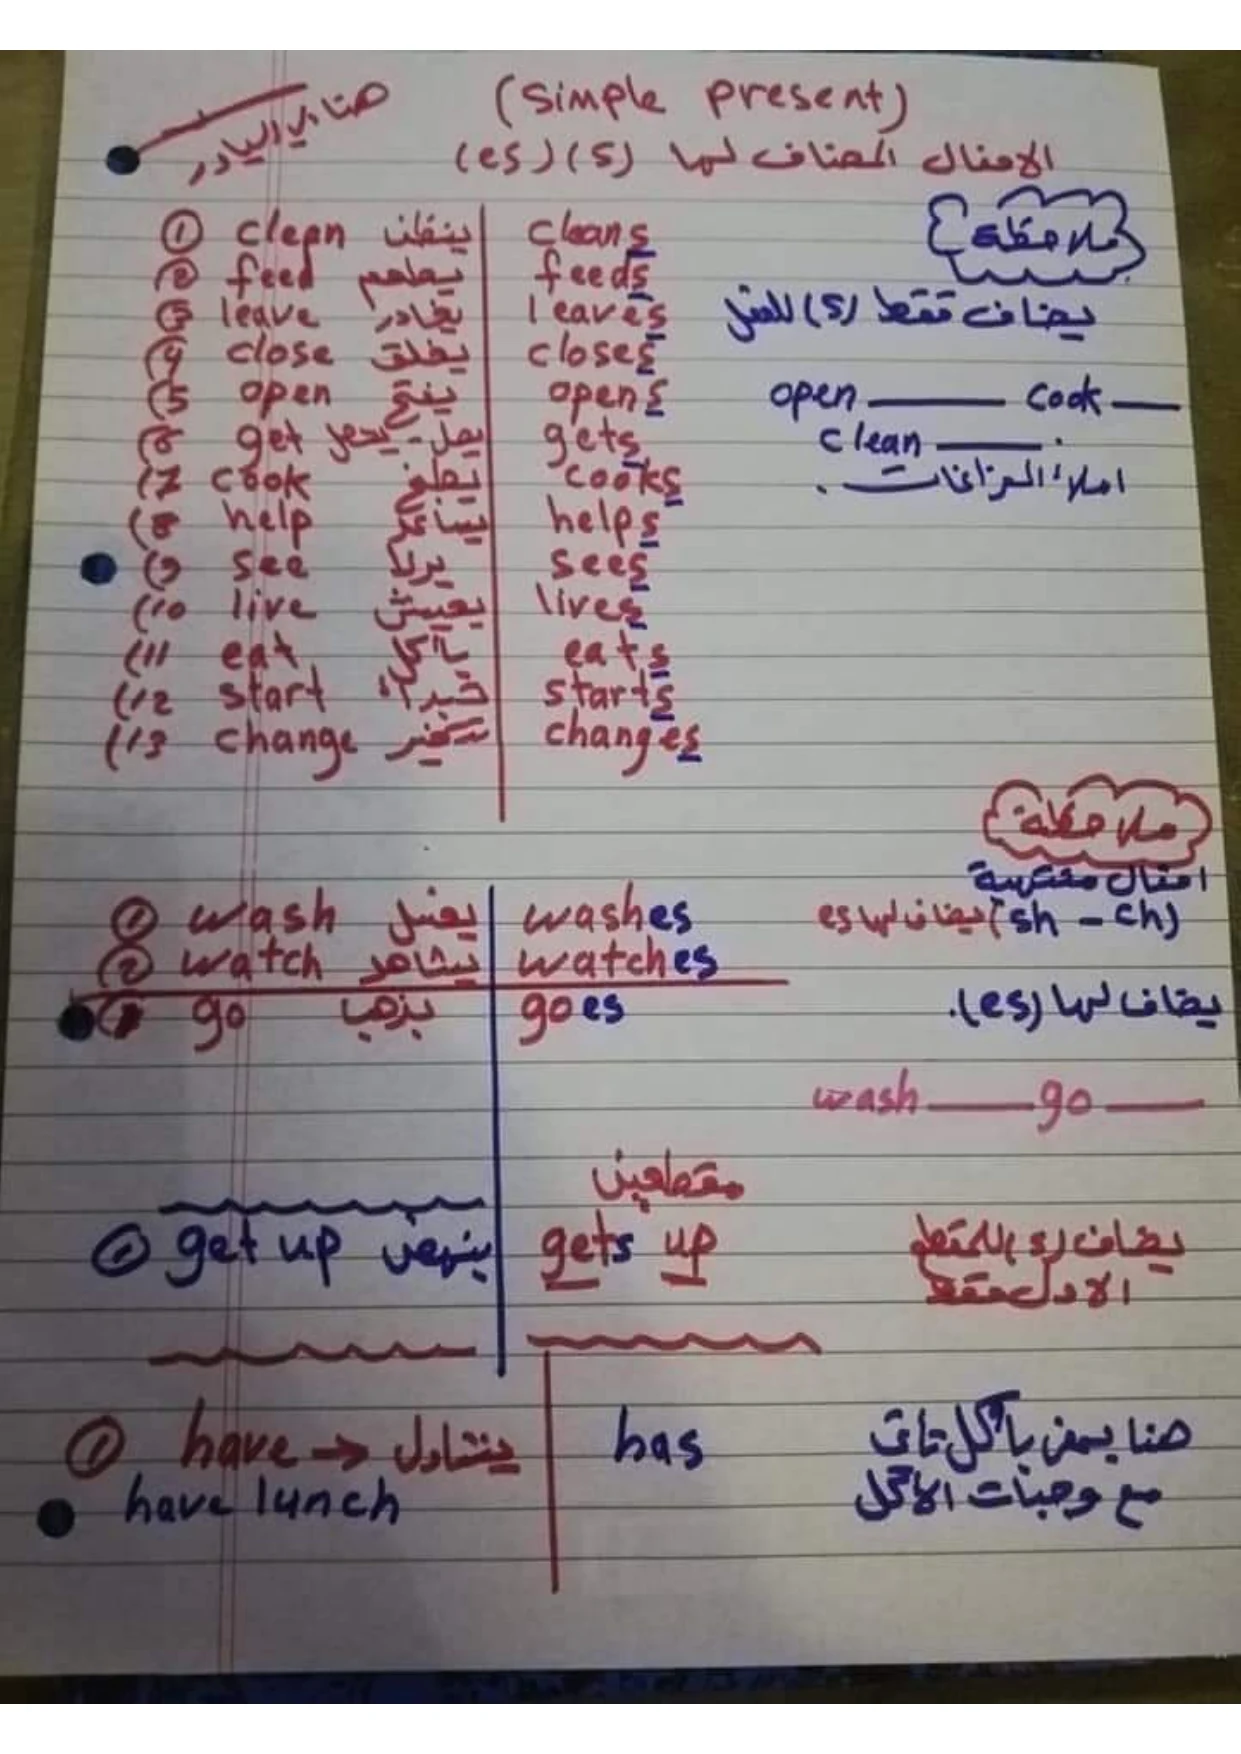 (Simple present)
الافعال المضاف لها (s) (es)
① clean ينظف cleans
② feed يطعم feeds
3 leave يغادر leaves
(4 close يغلق closes
(5 open يفتح opens
(6 get يصل - يحصل gets
(7 cook يطبخ cooks
(8 help يساعد helps
(9 see يرى sees
(10 live يعيش lives
(11 eat يأكل eats
(12 start يبدأ starts
(13 change يتغير changes
ملاحظة
يضاف فقط (s) للفعل
open ____ cook ____
clean ____ .
املاء الفراغات .
ملاحظة
افعال منتهية
(sh - ch) يضاف لها es
① wash يغسل washes
② watch يشاهد watches
go يذهب goes
يضاف لها (es).
wash ____ go ____
مقطعين
① get up ينهض gets up
يضاف (s) للمقطع
الاول فقط
① have → يتناول has
have lunch
هنا بمعنى يأكل تأتي
مع وجبات الاكل